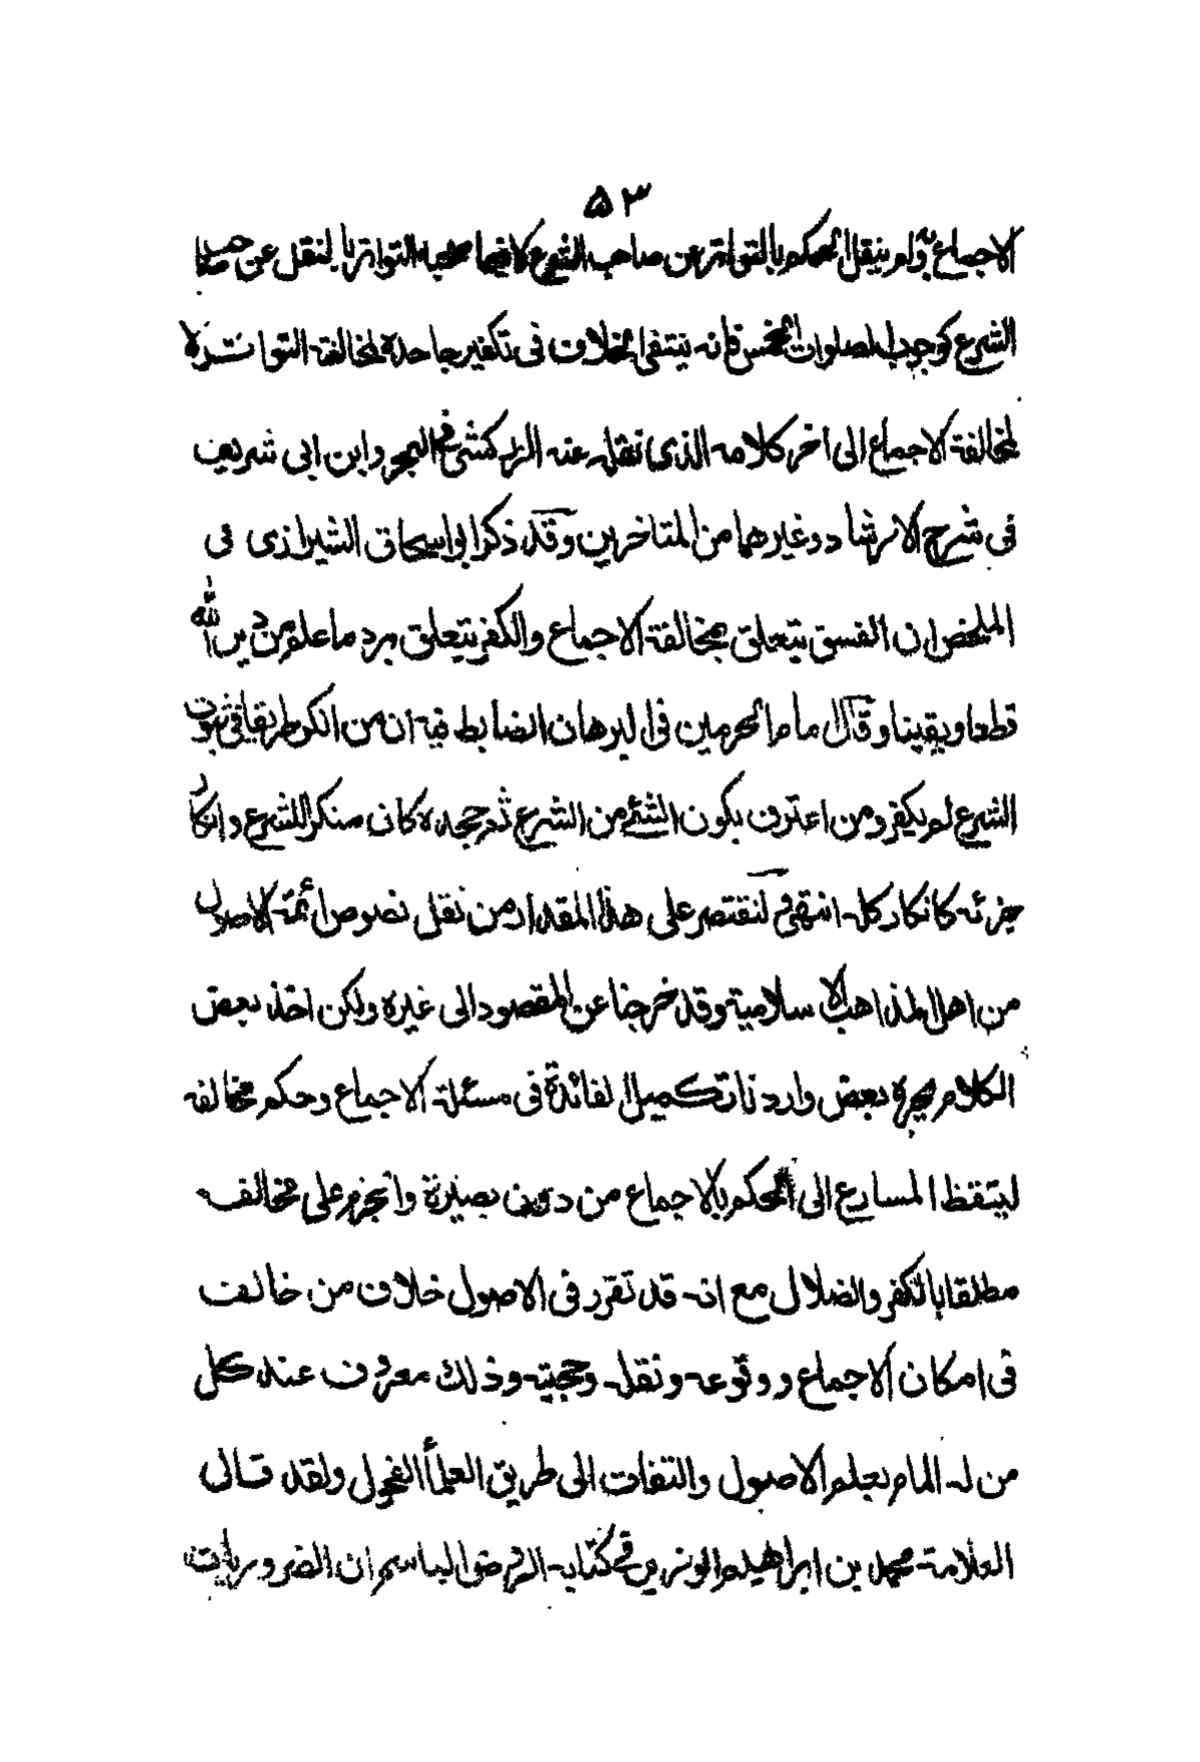 ٥٣
الاجماع به ولم ينقل الحكم بالتواتر عن صاحب الشرع لا فيما صحبه التواتر بالنقل عن صاحب
الشرع كوجوب الصلوات الخمس فانه ينتفى الخلاف فى تكفير جاحده لمخالفة التواتر لا
لمخالفة الاجماع الى اخر كلامه الذى نقله عنه الزركشى فى البحر وابن ابى شريف
فى شرح الارشاد وغيرهما من المتاخرين وقد ذكر ابو اسحاق الشيرازى فى
الملخص ان الفسق يتعلق بمخالفة الاجماع والكفر يتعلق برد ما علم من دين الله
قطعا ويقينا وقال امام الحرمين فى البرهان الضابط فيه ان من انكر طريقا فى ثبوت
الشرع لم يكفر ومن اعترف بكون الشئ من الشرع ثم جحده كان منكرا للشرع وانكار
جزئه كانكار كله انتهى ولنقتصر على هذا المقدار من نقل نصوص ائمة الاصول
من اهل المذاهب الاسلامية وقد خرجنا عن المقصود الى غيره ولكن اخذ بعض
الكلام بحجزة بعض واردنا تكميل الفائدة فى مسئلة الاجماع وحكم مخالفه
ليتقظ المسارع الى الحكم بالاجماع من دون بصيرة والجزم على مخالفه
مطلقا بالكفر والضلال مع انه قد تقرر فى الاصول خلاف من خالف
فى امكان الاجماع ووقوعه ونقله وحجيته وذلك معروف عند كل
من له المام بعلم الاصول والتفات الى طريق العلماء الفحول ولقد قال
العلامة محمد بن ابراهيم الوزير فى كتابه الروض الباسم ان الضروريات